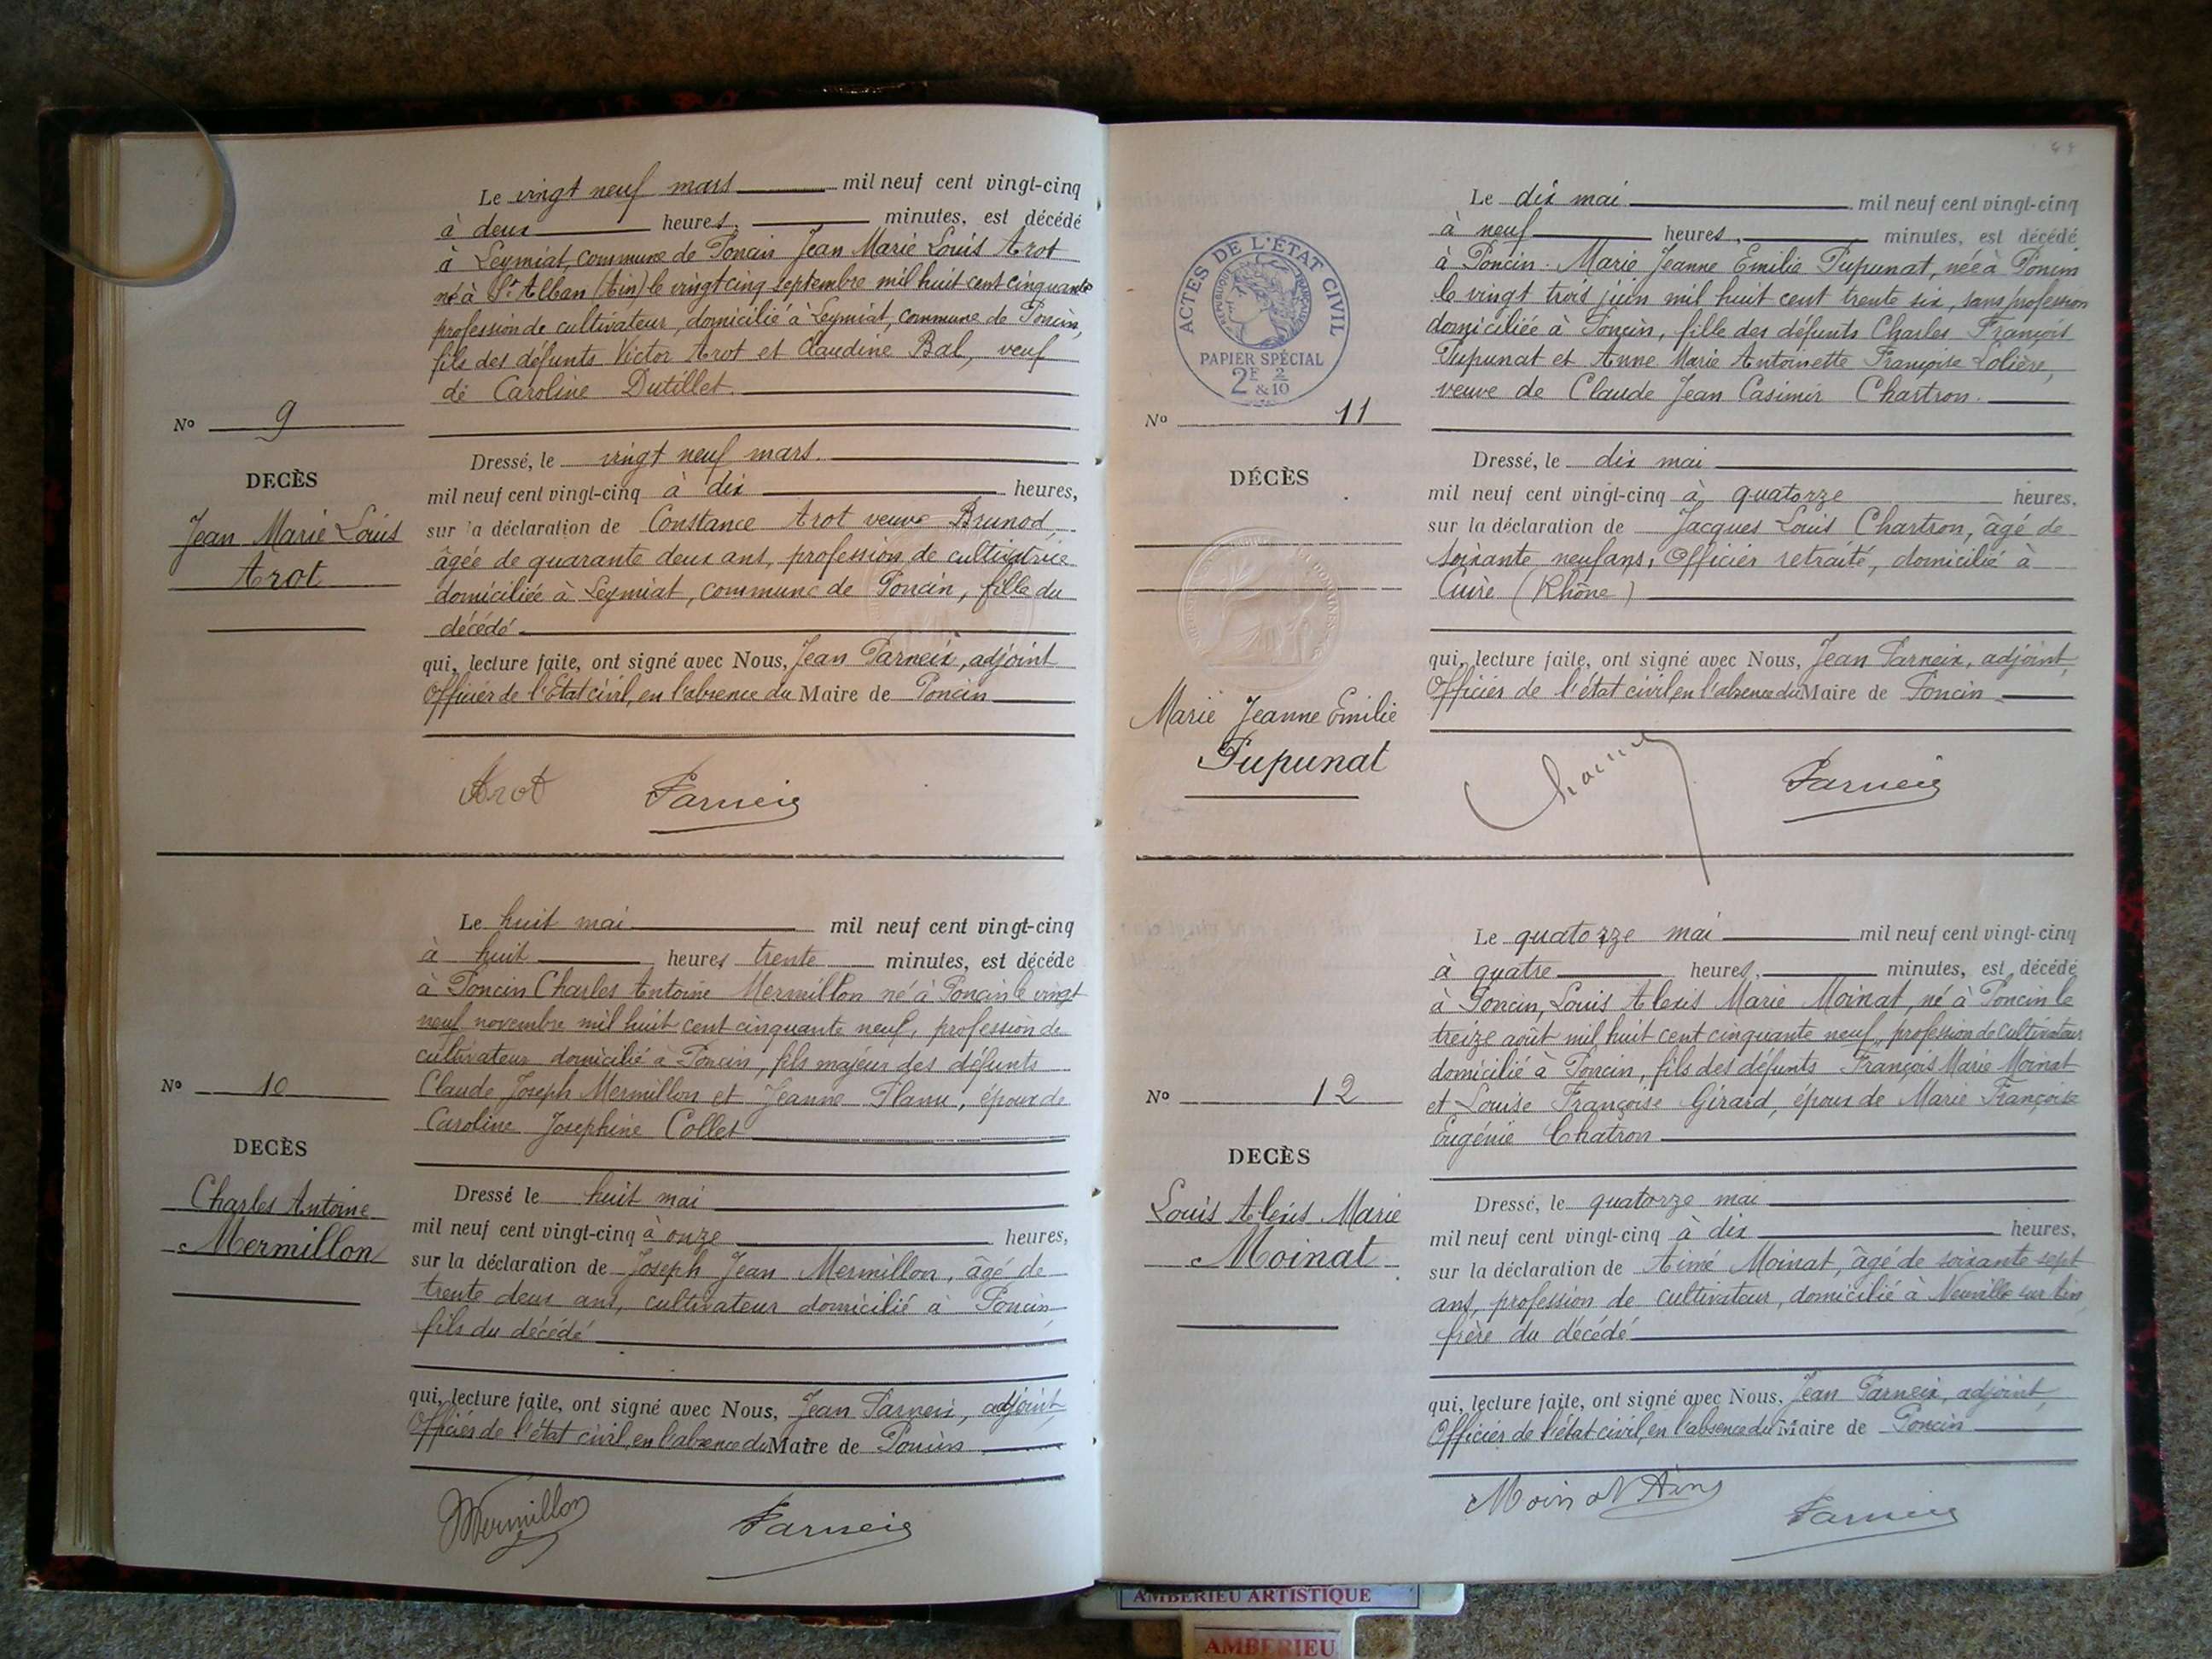 Le vingt neuf mars mil neuf cent vingt-cinq
à deux heures, minutes, est décédé
à Leymiat, commune de Poncin Jean Marie Louis Arot
né à St Alban (Ain) le vingt cinq septembre mil huit cent cinquante
profession de cultivateur, domicilié à Leymiat, commune de Poncin,
fils des défunts Victor Arot et Claudine Bal, veuf
de Caroline Dutillet.
No 9
DECÈS
Jean Marie Louis
Arot
Dressé, le vingt neuf mars.
mil neuf cent vingt-cinq à dix heures,
sur la déclaration de Constance Arot veuve Brunod
âgée de quarante deux ans, profession de cultivatrice
domiciliée à Leymiat, commune de Poncin, fille du
décédé
qui, lecture faite, ont signé avec Nous, Jean Parneix, adjoint
Officier de l'Etat civil, en l'absence du Maire de Poncin
Arot Parneix
Le huit mai mil neuf cent vingt-cinq
à huit heures trente minutes, est décédé
à Poncin Charles Antoine Mermillon né à Poncin le vingt
neuf novembre mil huit cent cinquante neuf, profession de
cultivateur domicilié à Poncin, fils majeur des défunts
Claude Joseph Mermillon et Jeanne Planu, époux de
Caroline Josephine Collet
No 10
DECÈS
Charles Antoine
Mermillon
Dressé le huit mai
mil neuf cent vingt-cinq à onze heures,
sur la déclaration de Joseph Jean Mermillon, âgé de
trente deux ans, cultivateur domicilié à Poncin,
fils du décédé
qui, lecture faite, ont signé avec Nous, Jean Parneix, adjoint,
Officier de l'état civil, en l'absence du Maire de Poncin
Mermillon Parneix
ACTES DE L'ÉTAT CIVIL
RÉPUBLIQUE FRANÇAISE
PAPIER SPÉCIAL
2F 2/10
&10
Le dix mai mil neuf cent vingt-cinq
à neuf heures, minutes, est décédé
à Poncin. Marie Jeanne Emilie Pupunat, née à Poncin
le vingt trois juin mil huit cent trente six, sans profession
domiciliée à Poncin, fille des défunts Charles François
Pupunat et Anne Marie Antoinette Françoise Lolière,
veuve de Claude Jean Casimir Chartron.
No 11
DÉCÈS
Marie Jeanne Emilie
Pupunat
Dressé, le dix mai
mil neuf cent vingt-cinq à quatorze heures,
sur la déclaration de Jacques Louis Chartron, âgé de
soixante neuf ans, Officier retraité, domicilié à
Cuire (Rhône)
qui, lecture faite, ont signé avec Nous, Jean Parneix, adjoint,
Officier de l'état civil, en l'absence du Maire de Poncin
Parneix
Le quatorze mai mil neuf cent vingt-cinq
à quatre heures, minutes, est décédé
à Poncin, Louis Alexis Marie Moinat, né à Poncin le
treize août mil huit cent cinquante neuf, profession de cultivateur
domicilié à Poncin, fils des défunts François Marie Moinat
et Louise Françoise Girard, époux de Marie Françoise
Eugénie Chatron
No 12
DECÈS
Louis Alexis Marie
Moinat
Dressé, le quatorze mai
mil neuf cent vingt-cinq à dix heures,
sur la déclaration de Aimé Moinat, âgé de soixante sept
ans, profession de cultivateur, domicilié à Neuville sur Ain
frère du décédé
qui, lecture faite, ont signé avec Nous, Jean Parneix, adjoint,
Officier de l'état civil, en l'absence du Maire de Poncin
Moinat Parneix
AMBERIEU ARTISTIQUE
AMBERIEU